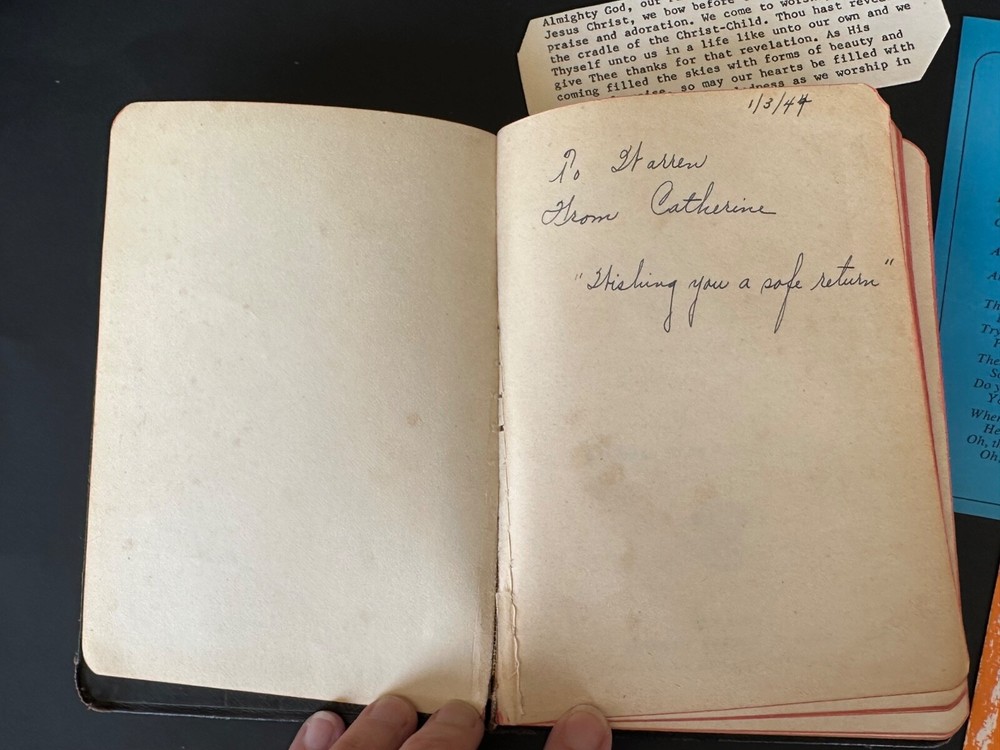 Almighty God, our
Jesus Christ, we bow before
praise and adoration. We come to
the cradle of the Christ-Child. Thou hast
Thyself unto us in a life like unto our own and we
give Thee thanks for that revelation. As His
coming filled the skies with forms of beauty and
so may our hearts be filled with
as we worship in
1/3/44
To Warren
From Catherine
"Wishing you a safe return"
Th
Try
The
So
Do y
Yo
When
He
Oh, th
Oh,